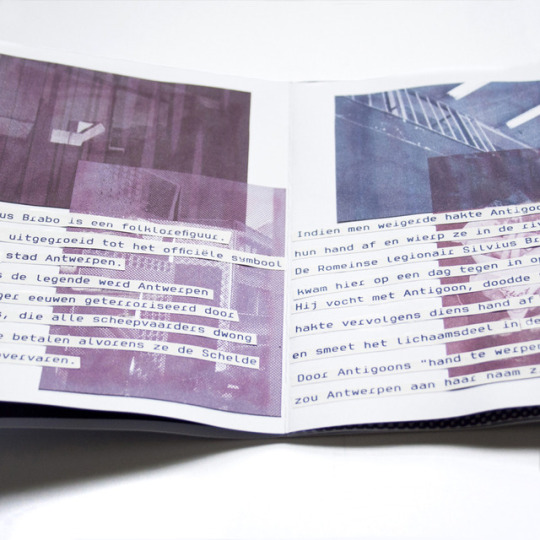 us Brabo is een folklorefiguur.
uitgegroeid tot het officiële symbool
stad Antwerpen.
s de legende werd Antwerpen
ger eeuwen geterroriseerd door
s, die alle scheepvaarders dwong
e betalen alvorens ze de Schelde
overvaren.
Indien men weigerde hakte Antigoo
hun hand af en wierp ze in de riv
De Romeinse legionair Silvius Br
kwam hier op een dag tegen in op
Hij vocht met Antigoon, doodde
hakte vervolgens diens hand af
en smeet het lichaamsdeel in de
Door Antigoons "hand te werpen
zou Antwerpen aan haar naam z